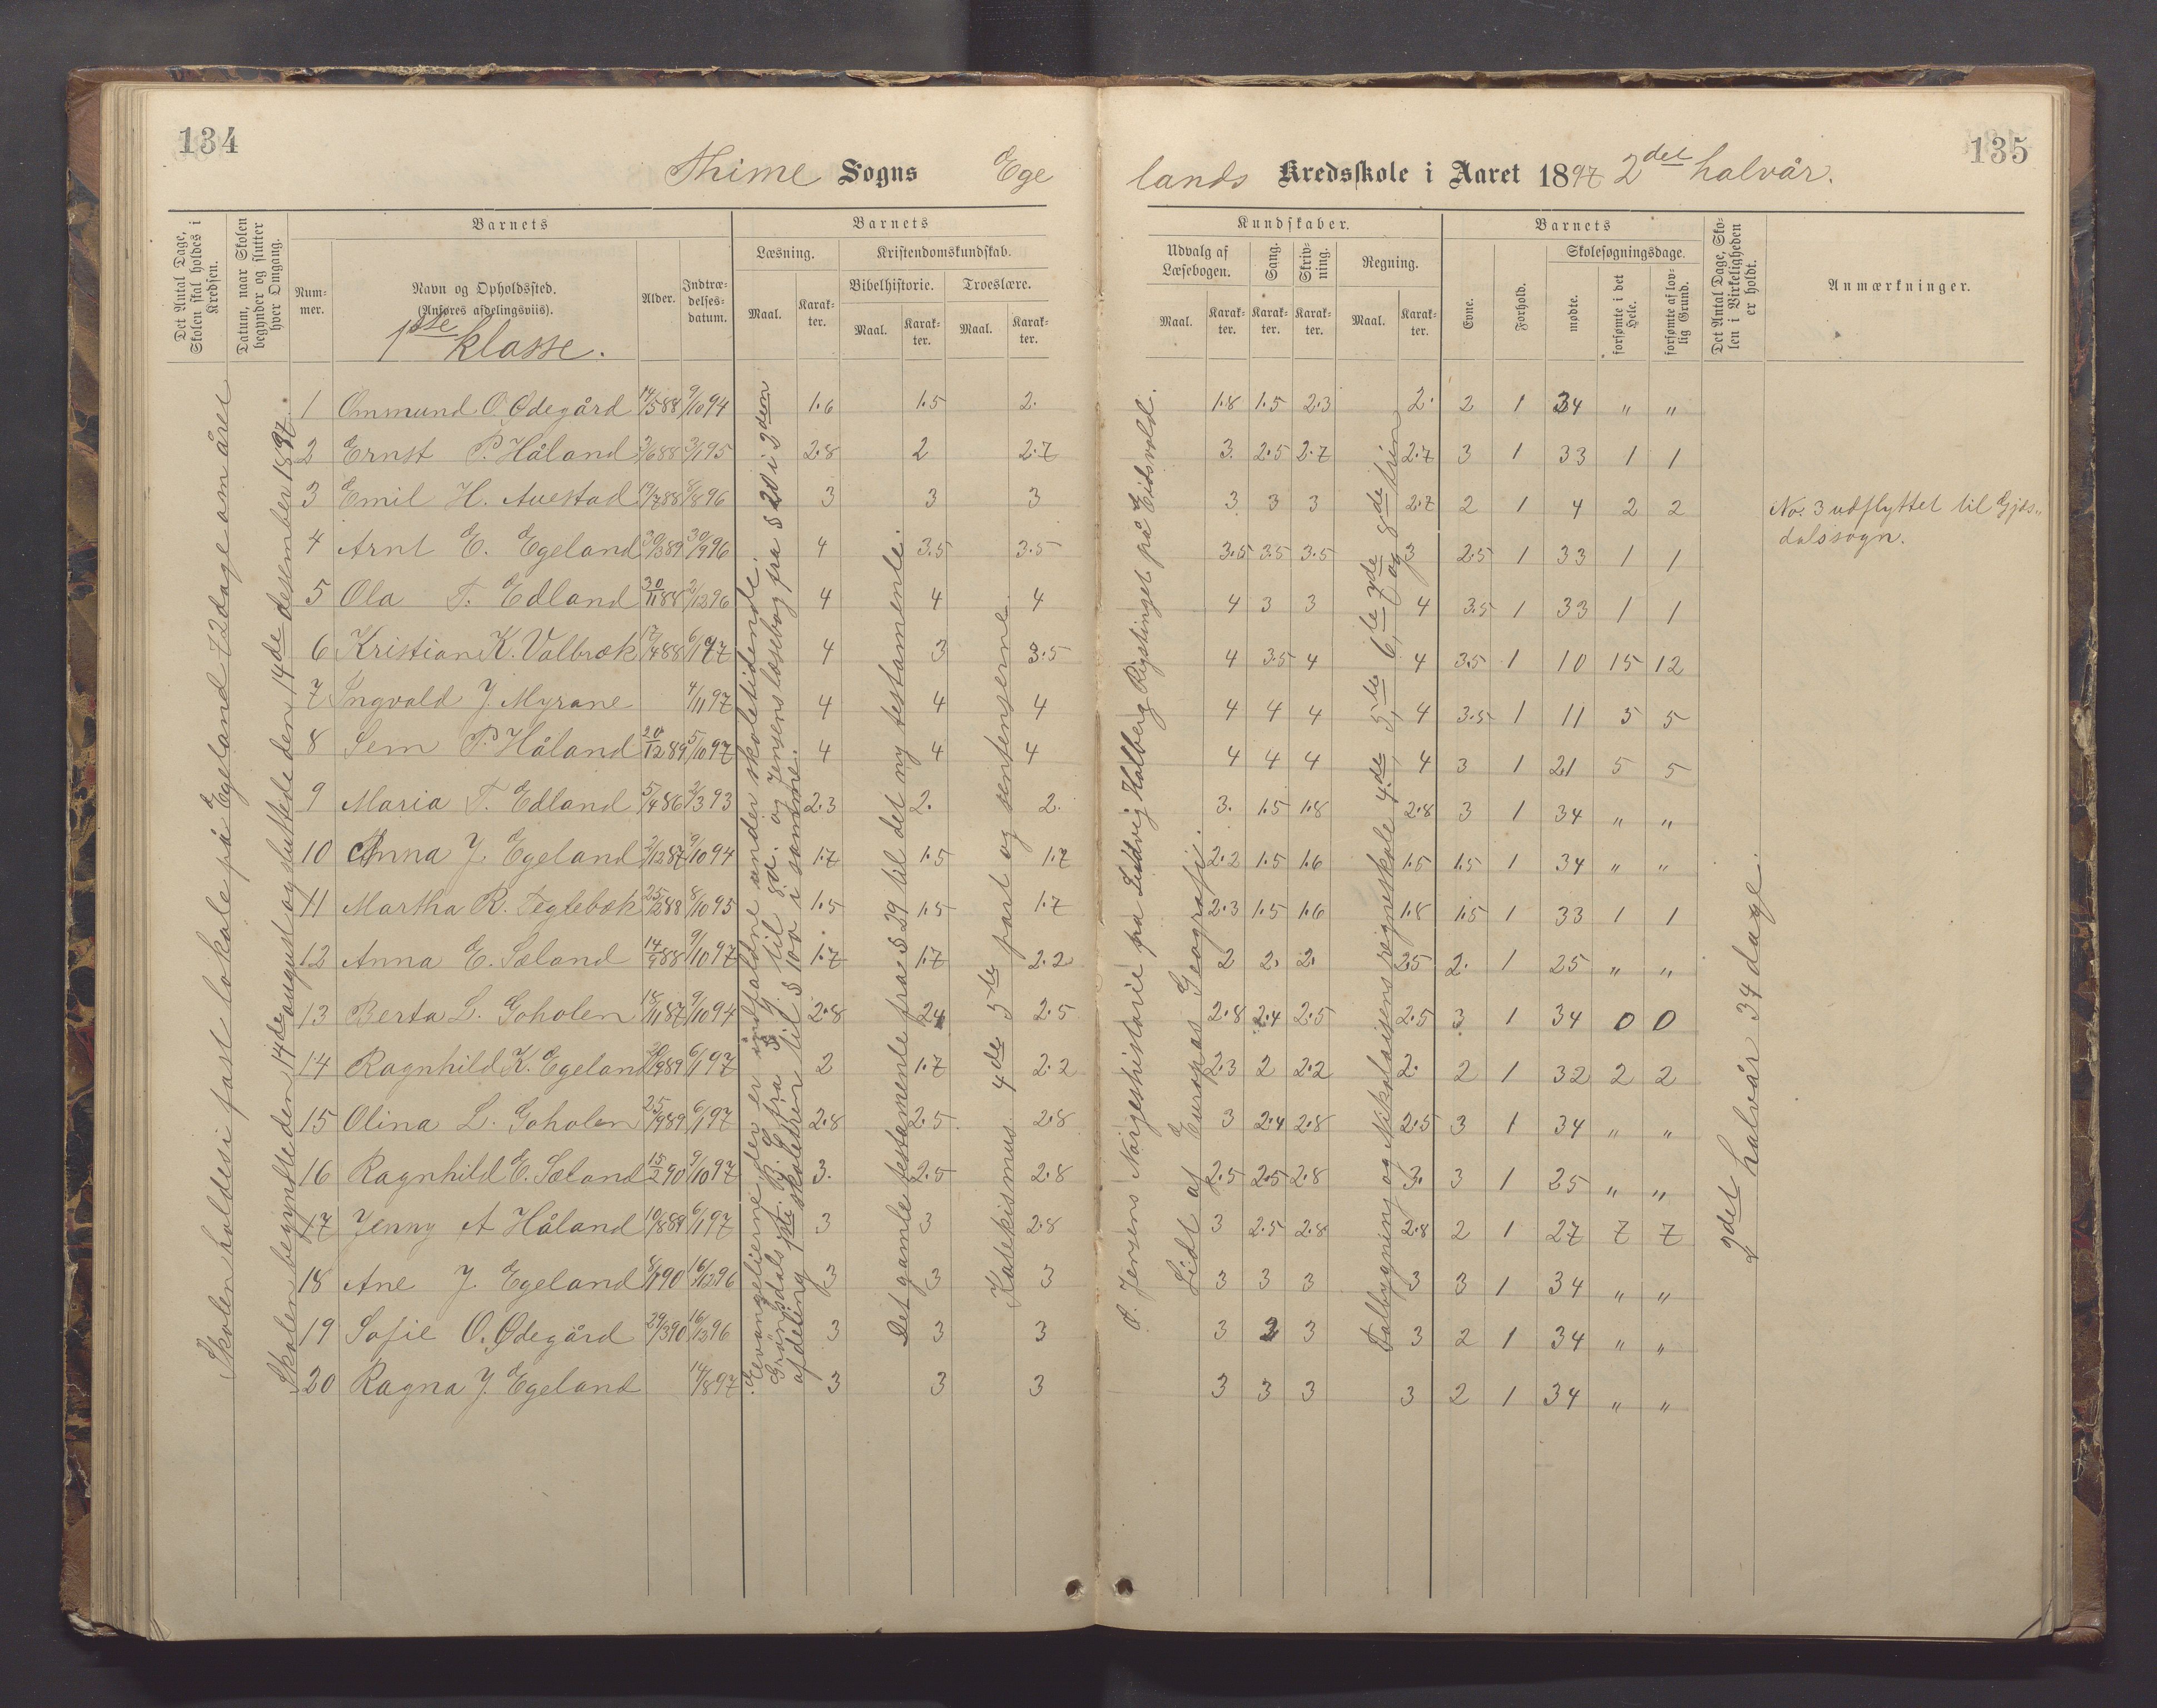 134
Thime Sogns Ege
Det Antal Dage, Skolen skal holdes i Kredsen.
Datum, naar Skolen begynder og slutter hver Omgang.
Barnets
Nummer.
Navn og Opholdssted.
(Anføres afdelingsviis).
1ste klasse.
Alder.
Indtrædelsesdatum.
Barnets
Læsning.
Maal.
Karakter.
Kristendomskundskab.
Bibelhistorie.
Maal.
Karakter.
Troeslære.
Maal.
Karakter.
Skolen holdes i fast lokale på Egeland 72 dage om året
Skolen begyndte den 14de august og sluttede den 14de desember 1897.
Evangelierne, der er indfaldne under skoletidende.
Gröndals 1ste B. fra § 9 til 82. og Jensens læsebog fra § 20 i 3dem
afdeling 1ste skoletren til § 100 i samme.
Det gamle testamente fra § 29 til det ny testamente.
Katekismus 4de 5te part og sentenserne
1 Ommund O. Ödegård 14/5 88 9/10 94 1.6 1.5 2.
2 Ernst P. Håland 3/6 88 3/1 95 2.8 2 2.7
3 Emil H. Auestad 19/7 88 8/8 96 3 3 3
4 Arnt E. Egeland 30/3 89 30/9 96 4 3.5 3.5
5 Ola T. Edland 30/11 88 2/12 96 4 4 4
6 Kristian K. Valbræk 17/4 88 6/1 97 4 3 3.5
7 Ingvald J. Myrane 4/11 97 4 4 4
8 Sem P. Håland 20/12 89 5/10 97 4 4 4
9 Maria T. Edland 5/4 86 2/3 93 2.3 2. 2.
10 Anna J. Egeland 2/12 87 9/10 94 1.7 1.5 1.7
11 Martha R. Teglebæk 25/12 88 8/10 95 1.5 1.5 1.7
12 Anna E. Sæland 14/9 88 9/10 97 1.7 1.7 2.2
13 Berta L. Goholen 18/11 87 9/10 94 2.8 2.4 2.5
14 Ragnhild K. Egeland 20/9 89 6/1 97 2 1.7 2.2
15 Olina L. Goholen 25/9 89 6/1 97 2.8 2.5 2.8
16 Ragnhild E. Sæland 15/2 90 9/10 97 3. 2.5 2.8
17 Jenny A Håland 10/8 89 6/1 97 3 3 2.8
18 Ane J. Egeland 8/1 90 16/12 96 3 3 3
19 Sofie O. Ödegård 29/3 90 16/12 96 3 3 3
20 Ragna J. Egeland 14/8 97 3 3 3
135
lands Kredsskole i Aaret 1897 2det halvår.
Kundskaber.
Udvalg af Læsebogen.
Maal.
Karakter.
Sang.
Karakter.
Skrivning.
Karakter.
Regning.
Maal.
Karakter.
Barnets
Evne.
Forhold.
Skolesøgningsdage.
mødte.
forsømte i det Hele.
forsømte af lovlig Grund.
Det Antal Dage, Skolen i Virkeligheden er holdt.
Anmærkninger.
O. Jensens Norgeshistorie fra Ludvig Holberg Rigstinget på Eidsvold.
Lidt af Europas Geografi.
Talbygning og Nikolaisens regneskole 4de 5te 6te 7de og 8de trin
2det halvår 34 dage.
1.8 1.5 2.3 2. 2 1 34 " "
3. 2.5 2.7 2.7 3 1 33 1 1
3 3 3 2.7 2 1 4 2 2 No. 3 udflyttet til Gjes„
dalssogn.
3.5 3.5 3.5 3 2.5 1 33 1 1
4 3 3 4 3.5 1 33 1 1
4 3.5 4 4 3.5 1 10 15 12
4 4 4 4 3.5 1 11 5 5
4 4 4 4 3 1 21 5 5
3. 1.5 1.8 2.8 3 1 34 " "
2.2 1.5 1.6 1.5 1.5 1 34 " "
2.3 1.5 1.6 1.8 1.5 1 33 1 1
2 2. 2. 2.5 2. 1 25 " "
2.8 2.4 2.5 2.5 3 1 34 0 0
2.3 2 2.2 2. 2 1 32 2 2
3 2.4 2.8 2.5 3 1 34 " "
2.5 2.5 2.8 3. 3 1 25 " "
3 2.5 2.8 2.8 2 1 27 7 7
3 3 3 3 3 1 34 " "
3 3 3 3 2 1 34 " "
3 3 3 3 2 1 34 " "